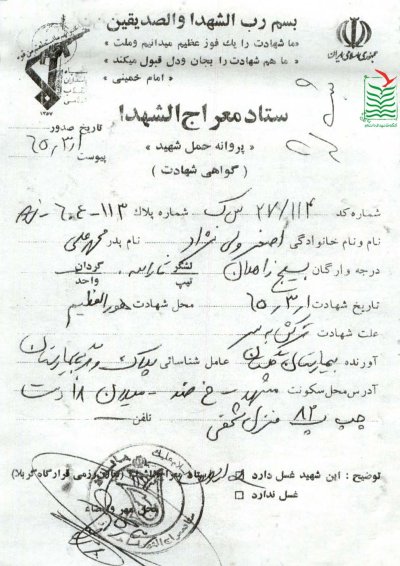 بسم رب الشهدا والصدیقین
«ما شهادت را یك فوز عظیم میدانیم وملت»
«ما هم شهادت را بجان ودل قبول میکند»
«امام خمینی»
جمهوری اسلامی ایران
ستاد معراج الشهدا
«پروانه حمل شهید»
(گواهی شهادت)
تاریخ صدور ۶۵/۳/۱
پیوست
شماره کد ۲۷/۱۱۴ س ک شماره پلاك ۱۱۳-۶۰۴
نام و نام خانوادگی اصغر ولی نژاد نام پدر محمد علی
درجه وارگان بسیج زاهدان لشگر تیپ ثارالله گردان واحد
تاریخ شهادت ۶۵/۳/۱ محل شهادت هورالعظیم
علت شهادت ترکش به سر
آورنده بیمارستان عامل شناسائی پلاک و بیمارستان
آدرس محل سکونت مشهد - خ - میلان ۱۸ دست
چپ پ ۸۲ منزل شخصی تلفن
توضیح: این شهید غسل دارد
غسل ندارد
ستاد معراج (قرارگاه کربلا)
محل مهر و امضاء